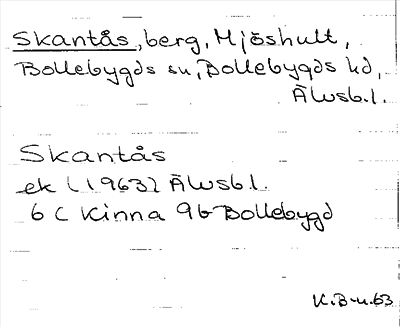 Skantås, berg, Mjöshult,
Bollebygds sn, Bollebygds hd,
Älvsb.l.
Skantås
ek (1963) Älvsb.l.
6 C Kinna 9b Bollebygd
K.B-u.63